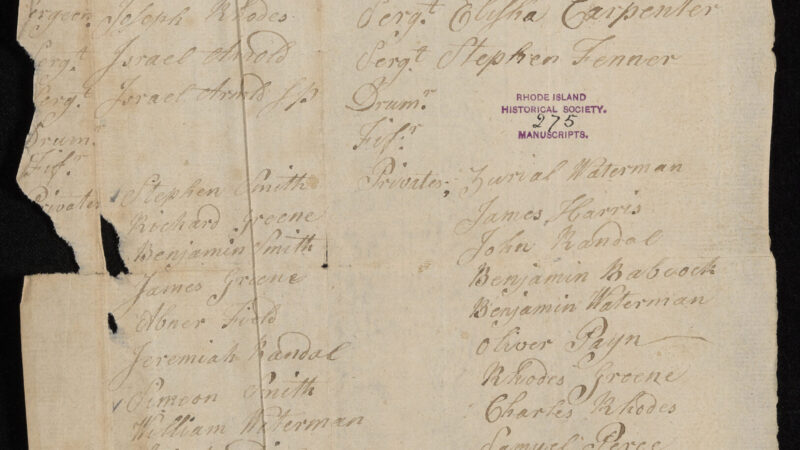 Serg.t Joseph Rhodes
Serg.t Israel Arnold
Serg.t Israel Arnld
Drum.r
Fif.r
Privates Stephen Smith
Richard Greene
Benjamin Smith
James Greene
Abner Field
Jeremiah Randal
Simeon Smith
William Waterman
Serg.t Elisha Carpenter
Serg.t Stephen Fenner
Drum.r
Fif.r
RHODE ISLAND
HISTORICAL SOCIETY.
275
MANUSCRIPTS.
Privates, Zurial Waterman
James Harris
John Randal
Benjamin Babcock
Benjamin Waterman
Oliver Payn
Rhodes Greene
Charles Rhodes
Samuel Perce